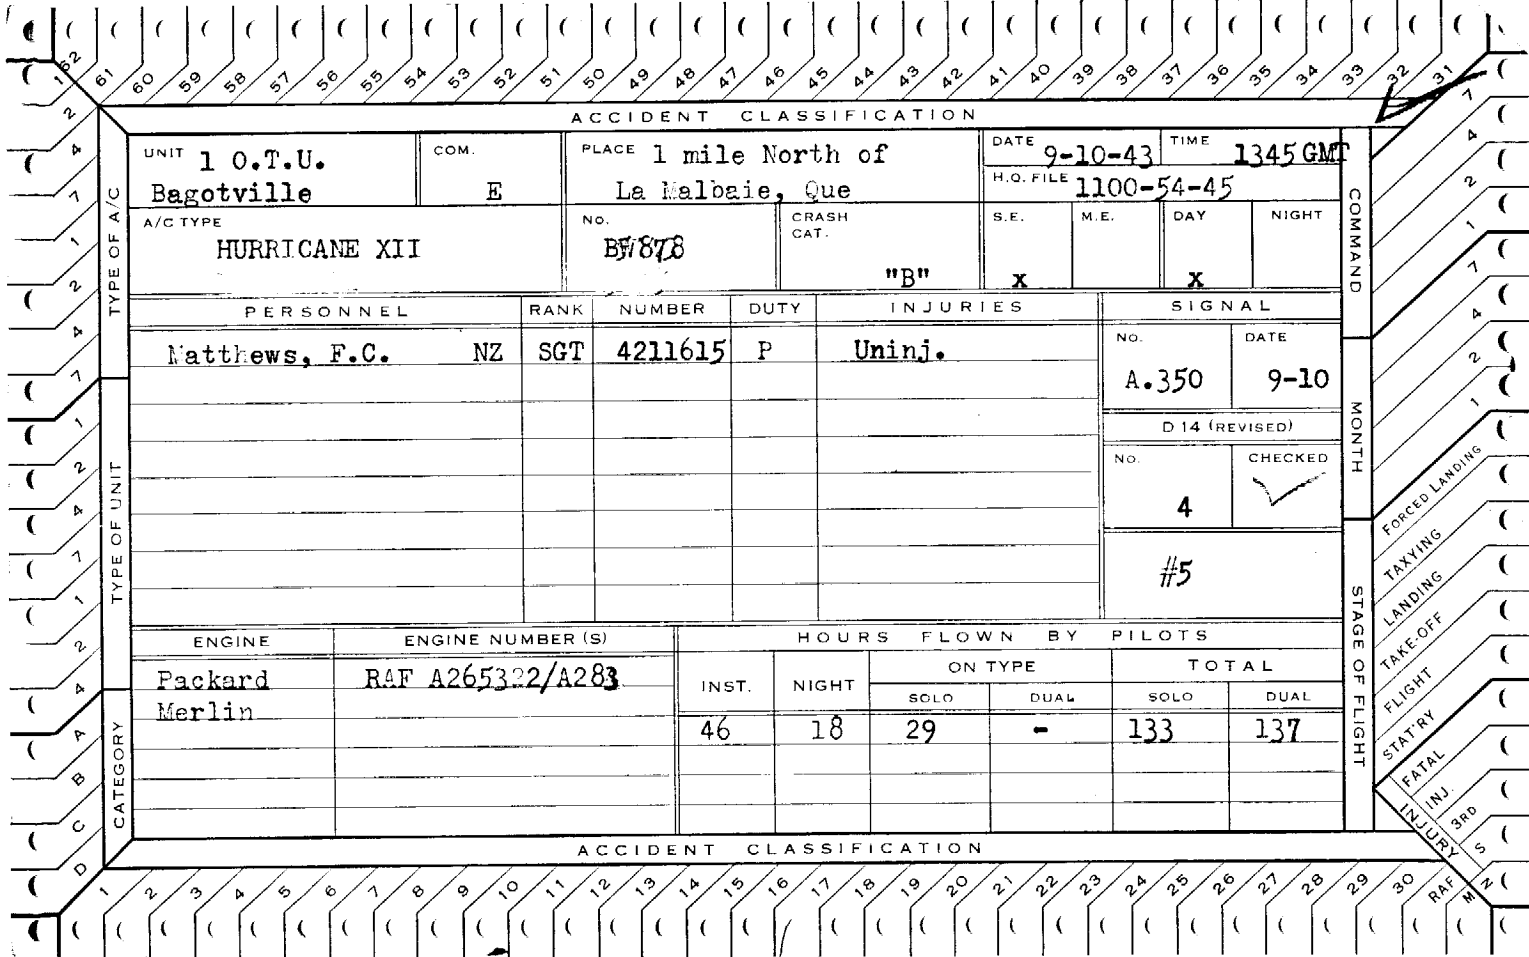 62 61 60 59 58 57 56 55 54 53 52 51 50 49 48 47 46 45 44 43 42 41 40 39 38 37 36 35 34 33 32 31
ACCIDENT CLASSIFICATION
UNIT 1 O.T.U.
Bagotville
COM.
E
PLACE 1 mile North of
La Malbaie, Que
DATE 9-10-43
TIME 1345 GMT
H.Q. FILE 1100-54-45
A/C TYPE
HURRICANE XII
No.
CRASH
CAT.
"B"
S.E.
X
M.E.
DAY
X
NIGHT
PERSONNEL RANK NUMBER DUTY INJURIES
Matthews, F.C. NZ SGT 4211615 P Uninj.
SIGNAL
No. DATE
A.350 9-10
D 14 (REVISED)
No. CHECKED
4
#5
ENGINE ENGINE NUMBER (S)
Packard
Merlin
HOURS FLOWN BY PILOTS
INST. NIGHT ON TYPE TOTAL
SOLO DUAL SOLO DUAL
46 18 29 - 133 137
ACCIDENT CLASSIFICATION
1 2 3 4 5 6 7 8 9 10 11 12 13 14 15 16 17 18 19 20 21 22 23 24 25 26 27 28 29 30 RAF M N S
TYPE OF A/C
TYPE OF UNIT
CATEGORY
1 2 4 7 1 2 4 7 1 2 4 7 1 2 4 A B C D
COMMAND
MONTH
STAGE OF FLIGHT
7 4 2 1 7 4 2 1
FORCED LANDING
TAXYING
LANDING
TAKE-OFF
FLIGHT
STAT'RY
FATAL
INJ.
3RD
INJURY